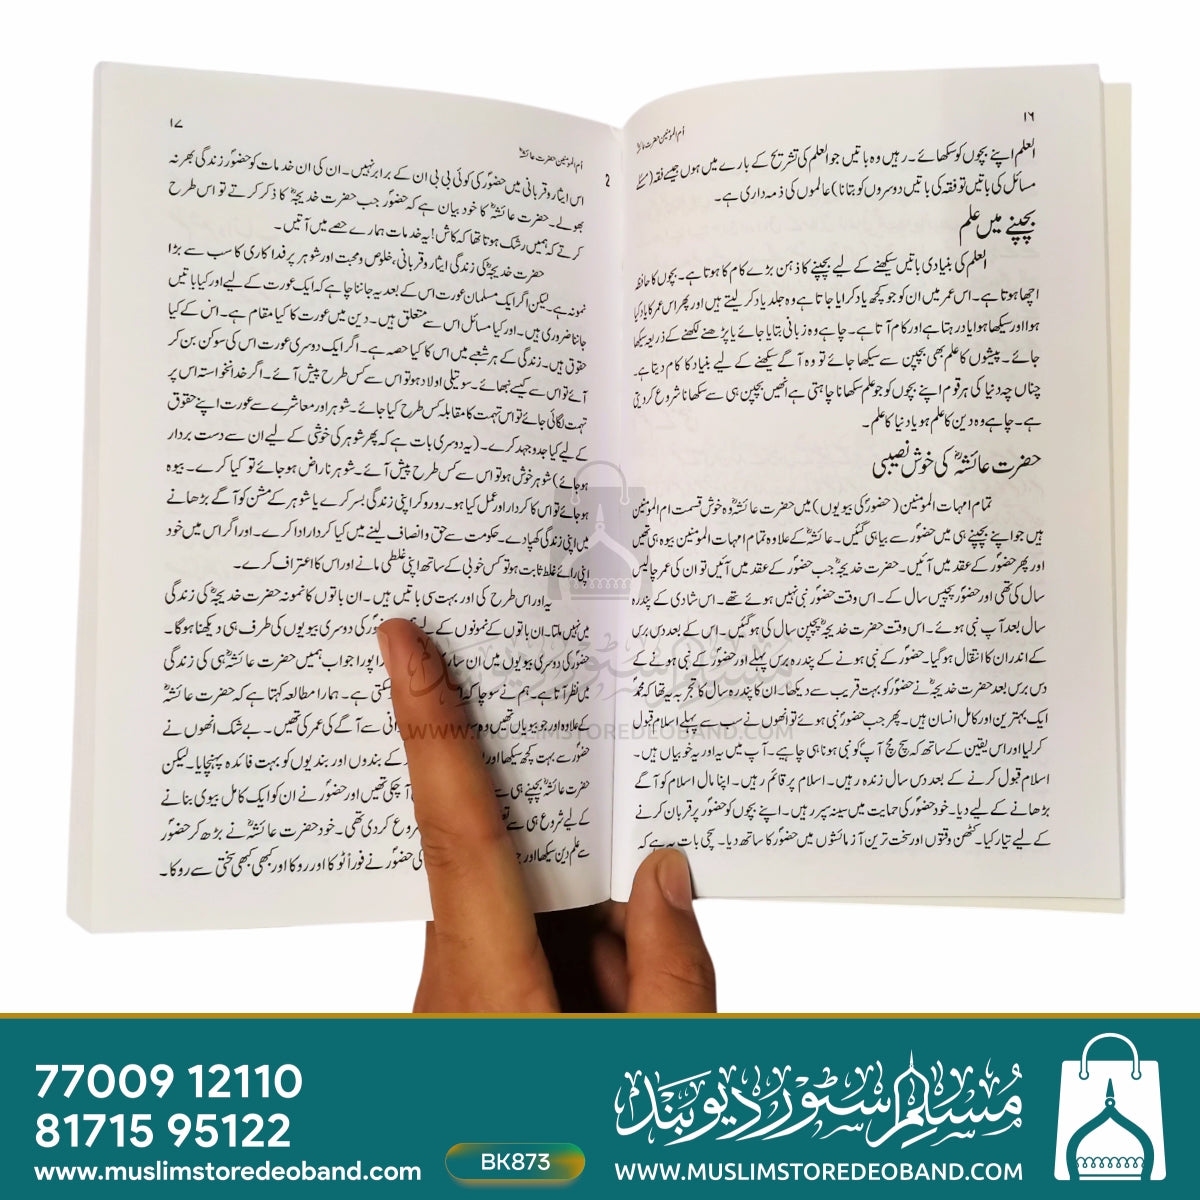 ۱۶
اُم المؤمنین حضرت عائشہؓ
العلم اپنے بچوں کو سکھائے۔ رہیں وہ باتیں جو العلم کی تشریح کے بارے میں ہوں جیسے فقہ (مسئلے
مسائل کی باتیں تو فقہ کی باتیں دوسروں کو بتانا) عالموں کی ذمہ داری ہے۔
بچپنے میں علم
العلم کی بنیادی باتیں سیکھنے کے لیے بچپنے کا ذہن بڑے کام کا ہوتا ہے۔ بچوں کا حافظہ
اچھا ہوتا ہے۔ اس عمر میں ان کو جو کچھ یاد کرایا جاتا ہے وہ جلد یاد کر لیتے ہیں اور پھر اس عمر کا یاد کیا
ہوا اور سیکھا ہوا یاد رہتا ہے اور کام آتا ہے۔ چاہے وہ زبانی بتایا جائے یا پڑھنے لکھنے کے ذریعہ سیکھا
جائے۔ پیشوں کا علم بھی بچپن سے سیکھا جائے تو وہ آگے سیکھنے کے لیے بنیاد کا کام دیتا ہے۔
چناں چہ دنیا کی ہر قوم اپنے بچوں کو جو علم سکھانا چاہتی ہے انھیں بچپن ہی سے سکھانا شروع کر دیتی
ہے۔ چاہے وہ دین کا علم ہو یا دنیا کا علم۔
حضرت عائشہؓ کی خوش نصیبی
تمام امہات المومنین (حضورؐ کی بیویوں) میں حضرت عائشہؓ وہ خوش قسمت ام المومنین
ہیں جو اپنے بچپنے ہی میں حضورؐ سے بیاہی گئیں۔ عائشہؓ کے علاوہ تمام امہات المومنین بیوہ ہی تھیں
اور پھر حضورؐ کے عقد میں آئیں۔ حضرت خدیجہؓ جب حضورؐ کے عقد میں آئیں تو ان کی عمر چالیس
سال کی تھی اور حضورؐ پچیس سال کے۔ اس وقت حضورؐ نبی نہیں ہوئے تھے۔ اس شادی کے پندرہ
سال بعد آپ نبی ہوئے۔ اس وقت حضرت خدیجہؓ پچپن سال کی ہو گئیں۔ اس کے بعد دس برس
کے اندر ان کا انتقال ہو گیا۔ حضورؐ کے نبی ہونے کے پندرہ برس پہلے اور حضورؐ کے نبی ہونے کے
دس برس بعد حضرت خدیجہؓ نے حضورؐ کو بہت قریب سے دیکھا۔ ان کا پندرہ سال کا تجربہ یہ تھا کہ محمدؐ
ایک بہترین اور کامل انسان ہیں۔ پھر جب حضورؐ نبی ہوئے تو انھوں نے سب سے پہلے اسلام قبول
کر لیا اور اس یقین کے ساتھ کہ سچ مچ آپؐ کو نبی ہونا ہی چاہیے۔ آپ میں یہ اور یہ خوبیاں ہیں۔
اسلام قبول کرنے کے بعد دس سال زندہ رہیں۔ اسلام پر قائم رہیں۔ اپنا مال اسلام کو آگے
بڑھانے کے لیے دیا۔ خود حضورؐ کی حمایت میں سینہ سپر رہیں۔ اپنے بچوں کو حضورؐ پر قربان کرنے
کے لیے تیار کیا۔ کٹھن وقتوں اور سخت ترین آزمائشوں میں حضورؐ کا ساتھ دیا۔ سچی بات یہ ہے کہ
۱۷
اُم المؤمنین حضرت عائشہؓ
2
اس ایثار و قربانی میں حضورؐ کی کوئی بی بی ان کے برابر نہیں۔ ان کی ان خدمات کو حضورؐ زندگی بھر نہ
بھولے۔ حضرت عائشہؓ کا خود بیان ہے کہ حضورؐ جب حضرت خدیجہؓ کا ذکر کرتے تو اس طرح
کرتے کہ ہمیں رشک ہوتا تھا کہ کاش! یہ خدمات ہمارے حصے میں آتیں۔
حضرت خدیجہؓ کی زندگی ایثار و قربانی، خلوص و محبت اور شوہر پر فدا کاری کا سب سے بڑا
نمونہ ہے لیکن اگر ایک مسلمان عورت اس کے بعد یہ جاننا چاہے کہ ایک عورت کے لیے اور کیا باتیں
جاننا ضروری ہیں۔ اور کیا مسائل اس سے متعلق ہیں۔ دین میں عورت کا کیا مقام ہے۔ اس کے کیا
حقوق ہیں۔ زندگی کے ہر شعبے میں اس کا کیا حصہ ہے۔ اگر ایک دوسری عورت اس کی سوکن بن کر
آئے تو اس سے کیسے نبھائے۔ سوتیلی اولاد ہو تو اس سے کس طرح پیش آئے۔ اگر خدانخواستہ اس پر
تہمت لگائی جائے تو اس تہمت کا مقابلہ کس طرح کیا جائے۔ شوہر اور معاشرے سے عورت اپنے حقوق
کے لیے کیا جدوجہد کرے۔ (یہ دوسری بات ہے کہ پھر شوہر کی خوشی کے لیے ان سے دست بردار
ہو جائے) شوہر خوش ہو تو اس سے کس طرح پیش آئے۔ شوہر ناراض ہو جائے تو کیا کرے۔ بیوہ
ہو جائے تو اس کا کردار اور عمل کیا ہو۔ رو رو کر اپنی زندگی بسر کرے یا شوہر کے مشن کو آگے بڑھانے
میں اپنی زندگی کھپا دے۔ حکومت سے حق و انصاف لینے میں کیا کردار ادا کرے۔ اور اگر اس میں خود
اپنی رائے غلط ثابت ہو تو کس خوبی کے ساتھ اپنی غلطی مانے اور اس کا اعتراف کرے۔
یہ اور اس طرح کی اور بہت سی باتیں ہیں۔ ان باتوں کا نمونہ حضرت خدیجہؓ کی زندگی
میں نہیں ملتا۔ ان باتوں کے نمونوں کے لیے حضورؐ کی دوسری بیویوں کی طرف ہی دیکھنا ہو گا۔
حضورؐ کی دوسری بیویوں میں ان پورا جواب ہمیں حضرت عائشہؓ ہی کی زندگی
میں نظر آتا ہے۔ ہم نے سوچا کہ سکتی ہے۔ ہمارا مطالعہ کہتا ہے کہ حضرت عائشہؓ
کے علاوہ اور جو بیویاں تھیں وہ سے آگے کی عمر کی تھیں۔ بے شک انھوں نے
حضورؐ سے بہت کچھ سیکھا اور کے بندوں اور بندیوں کو بہت فائدہ پہنچایا۔ لیکن
حضرت عائشہؓ بچپنے ہی سے آ چکی تھیں اور حضورؐ نے ان کو ایک کامل بیوی بنانے
کے لیے شروع ہی سے کر دی تھی۔ خود حضرت عائشہؓ نے بڑھ کر حضورؐ
سے علم دین سیکھا اور حضورؐ نے فوراً ٹوکا اور روکا اور کبھی کبھی سختی سے روکا۔
مسلم سٹور دیوبند
WWW.MUSLIMSTOREDEOBAND.COM
77009 12110
81715 95122
www.muslimstoredeoband.com
BK873
مسلم سٹور دیوبند
WWW.MUSLIMSTOREDEOBAND.COM